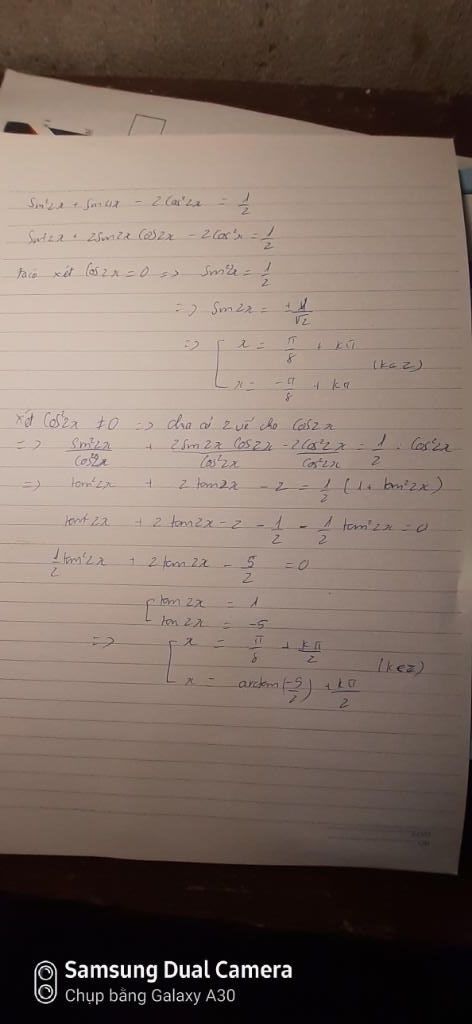 Sin²2x + Sin4x - 2Cos²2x = 1/2
Sin²2x + 2Sin2x Cos2x - 2Cos²x = 1/2
xét Cos2x = 0 => Sin²x = 1/2
=> Sin2x = ±1/√2
=> [ x = π/8 + kπ
x = -π/8 + kπ (k∈Z)
xét Cos²2x ≠ 0 => chia cả 2 vế cho Cos2x
=> Sin²2x/Cos²2x + 2Sin2x Cos2x/Cos²2x - 2Cos²2x/Cos²2x = 1/2 . Cos²2x
=> tan²2x + 2tan2x - 2 = 1/2 (1 + tan²2x)
tan²2x + 2tan2x - 2 - 1/2 - 1/2 tan²2x = 0
1/2 tan²2x + 2tan2x - 5/2 = 0
[ tan2x = 1
tan2x = -5
=> [ x = π/8 + kπ/2
x = arctan(-5/2) + kπ/2 (k∈Z)
Samsung Dual Camera
Chụp bằng Galaxy A30